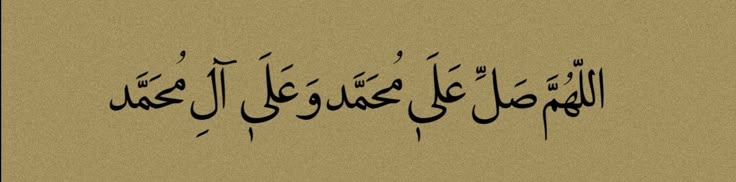 اللّهُمَّ صَلِّ عَلَىٰ مُحَمَّد وَ عَلَىٰ آلِ مُحَمَّد